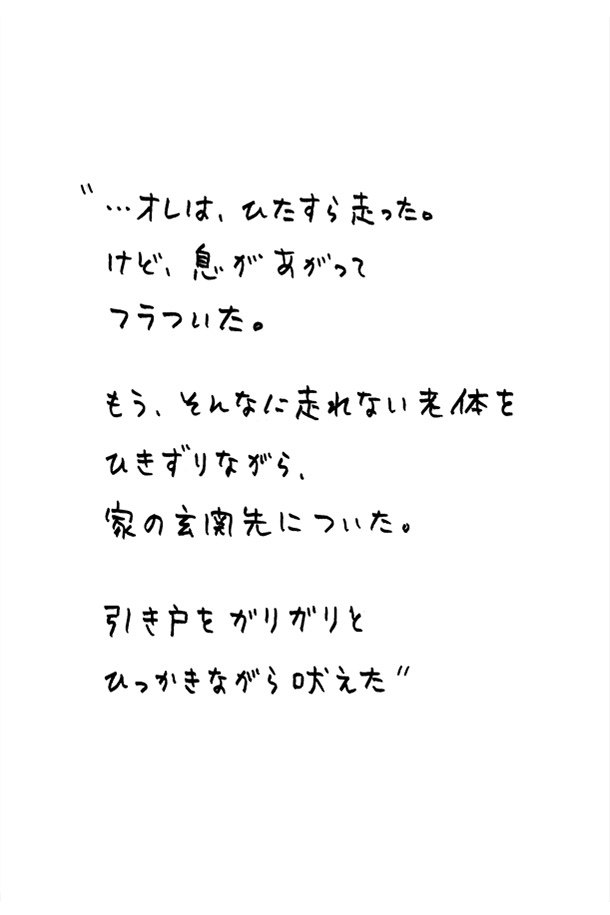 "…オレは、ひたすら走った。
けど、息があがって
フラついた。
もう、そんなに走れない老体を
ひきずりながら、
家の玄関先についた。
引き戸をガリガリと
ひっかきながら吠えた"